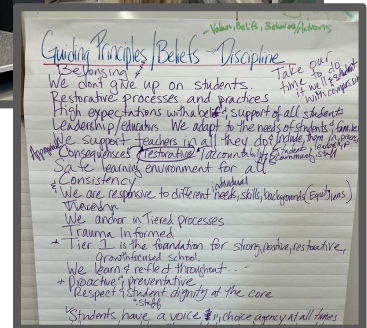 - Values, Beliefs, Behaviors/Actions
Guiding Principles/Beliefs - Discipline
Belonging
Take our time to do it well & student with compassion
We dont give up on students.
Restorative processes and practices
High expectations with a belief & support of all students
Leadership/educators We adapt to the needs of students & families
We support teachers in all they do & include them in process
Appropriate Consequences (restorative) / accountability to students, leadership, community, staff
Safe learning environment for all
Consistency
We are responsive to different individual needs, skills, backgrounds (Equity)
We anchor in Tiered processes
Trauma Informed
+ Tier 1 is the foundation for strong, positive, restorative, growth focused school.
We learn & reflect throughout...
+ Proactive & preventative
Respect & student dignity at the core
& staff
Students have a voice & choice agency at all times